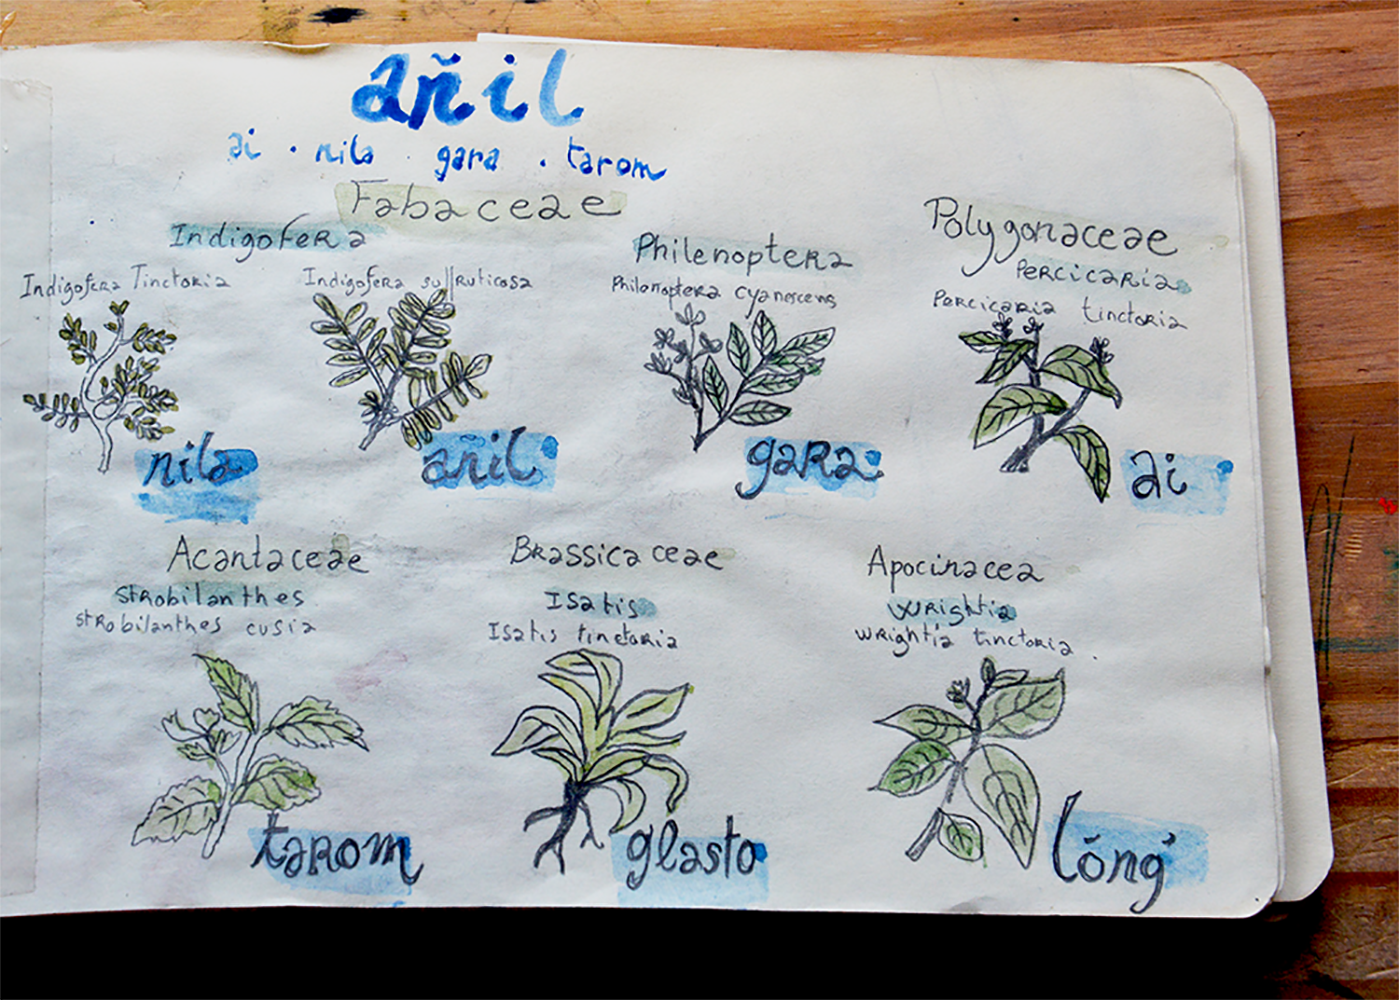 añil
ai · nila · gara · tarom
Fabaceae
Indigofera
Indigofera Tinctoria
nila
Indigofera suffruticosa
añil
Philenoptera
Philenoptera cyanescens
gara
Polygonaceae
Percicaria
Percicaria tinctoria
ai
Acantaceae
Strobilanthes
strobilanthes cusia
tarom
Brassicaceae
Isatis
Isatis tinctoria
glasto
Apocinacea
Wrightia
Wrightia tinctoria.